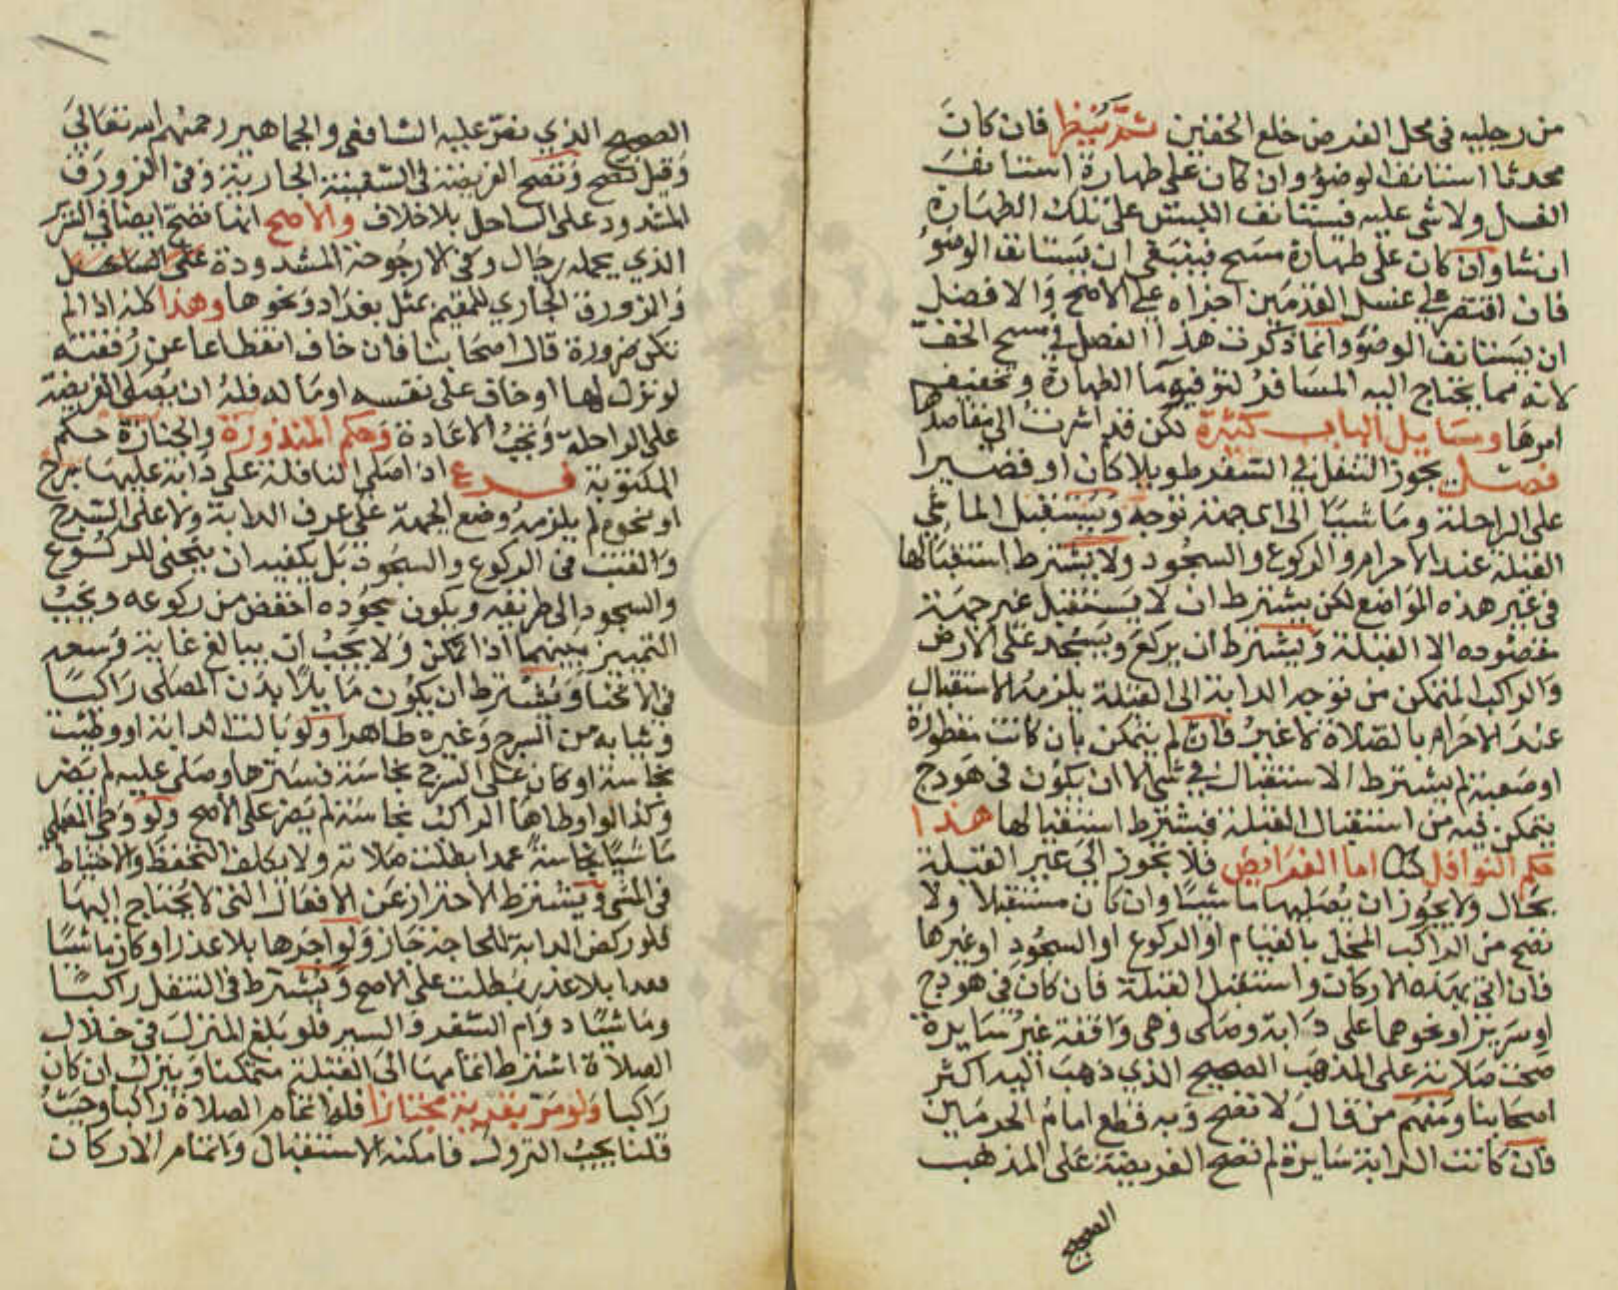 من رجليه في محل الفرض خلع الخفين ثم ينظر فان كان
محدثا استانف الوضؤ وان كان على طهارة استانف
الغسل ولا شى عليه فيستانف اللبس على تلك الطهارة
ان شا وان كان على طهارة مسح فينبغى ان يستانف الوضؤ
فان اقتصر على غسل القدمين اجزاه على الاصح والافضل
ان يستانف الوضؤ وانما ذكرت هذا الفصل في مسح الخف
لانه مما يحتاج اليه المسافر لتوفيه ما الطهارة وتخفيف
امرها ومسايل الباب كثيرة لكن قد اشرت الى مقاصدها
فصل يجوز التنفل في السفر طويلا كان او قصيرا
على الراحلة وماشيا الى اى جهة توجه ويستقبل الماشى
القبلة عند الاحرام والركوع والسجود ولا يشترط استقبالها
في غير هذه المواضع لكن يشترط ان لا يستقبل غير جهة
مقصوده الا القبلة ويشترط ان يركع ويسجد على الارض
والراكب المتمكن من توجه الدابة الى القبلة يلزمه الاستقبال
عند الاحرام بالصلاة لا غير فان لم يتمكن بان كانت مقطورة
او صعبة لم يشترط الاستقبال في شى الا ان يكون في هودج
يتمكن فيه من استقبال القبلة فيشترط استقبالها هذا
حكم النوافل كلها اما الفرايض فلا يجوز الى غير القبلة
بحال ولا يجوز ان يصليها ماشيا وان كان مستقبلا ولا
تصح من الراكب المخل بالقيام او الركوع او السجود او غيرها
فان اتى بهذه الاركان واستقبل القبلة فان كان في هودج
او سرير او نحوهما على دابة وصلى وهى واقفة غير سايرة
صحت صلاته على المذهب الصحيح الذي ذهب اليه اكثر
اصحابنا ومنهم من قال لا تصح وبه قطع امام الحرمين
فان كانت الدابة سايرة لم تصح الفريضة على المذهب
الصحيح
الصحيح الذي نص عليه الشافعي والجماهير رحمهم الله تعالى
وقيل تصح وتصح الفريضة في السفينة الجارية وفى الزورق
المشدود على الساحل بلا خلاف والاصح انها تصح ايضا في السرير
الذي يحمله رجال وفى الارجوحة المشدودة على الساحل
والزورق الجاري للمقيم بمثل بغداد ونحوها وهذا كله اذا لم
تكن ضرورة قال اصحابنا فان خاف انقطاعا عن رفقته
لو نزل لها او خاف على نفسه او ماله فله ان يصلى الفريضة
على الراحلة وتجب الاعادة وحكم المنذورة والجنازة حكم
المكتوبة فرع اذا صلى النافلة على دابة عليها سرج
او نحوه لم يلزمه وضع الجبهة على عرف الدابة ولا على السرج
والقتب في الركوع والسجود بل يكفيه ان ينحنى للركوع
والسجود الى طريقه ويكون سجوده اخفض من ركوعه ويجب
التمييز بينهما اذا تمكن ولا يجب ان يبالغ غاية وسعه
في الانحنا ويشترط ان يكون ما يلاقى بدن المصلى راكبا
وثيابه من السرج وغيره طاهرا ولو بالت الدابة او وطيت
نجاسة او كان على السرج نجاسة فسترها وصلى عليه لم يضر
وكذا لو اوطاها الراكب نجاسة لم يضر على الاصح ولو وطى المصلى
ماشيا نجاسة عمدا بطلت صلاته ولا يكلف التحفظ والاحتياط
في المشى ويشترط الاحتراز عن الافعال التى لا يحتاج اليها
فلو ركض الدابة للحاجة جاز ولو اجراها بلا عذر او كان ماشيا
فعدا بلا عذر بطلت على الاصح ويشترط في التنفل راكبا
وماشيا دوام السفر والسير فلو بلغ المنزل في خلال
الصلاة اشترط اتمامها الى القبلة متمكنا وينزل ان كان
راكبا ولو مر بقرية مجتازا فله اتمام الصلاة راكبا وحيث
قلنا يجب النزول فامكنه الاستقبال واتمام الاركان